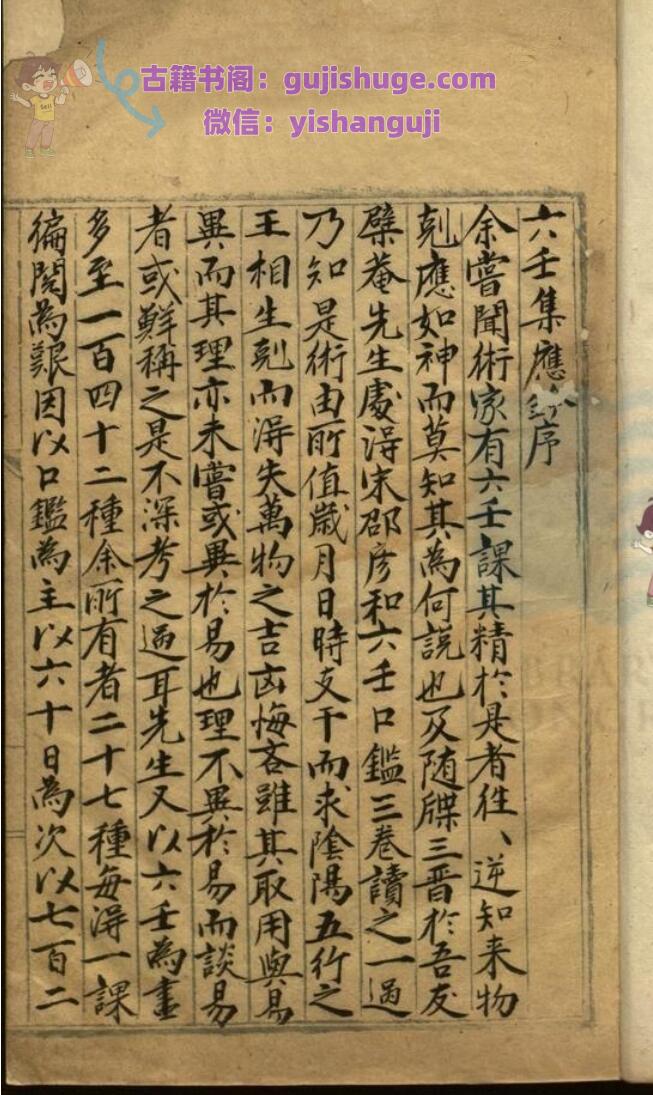 古籍书阁：gujishuge.com
微信：yishanguji
六壬集應鈐序
余嘗聞術家有六壬課其精於是者徃、逆知来物
剋應如神而莫知其為何説也及随牒三晋於吾友
檗菴先生處淂宋邵彦和六壬口鑑三卷讀之一過
乃知是術由所值歲月日時支干而求陰陽五行之
王相生剋而淂失萬物之吉凶悔吝雖其取用與易
異而其理亦未嘗或異於易也理不異於易而談易
者或鮮稱之是不深考之過耳先生又以六壬為書
多至一百四十二種余所有者二十七種每淂一課
徧閲為艱因以口鑑為主以六十日為次以七百二